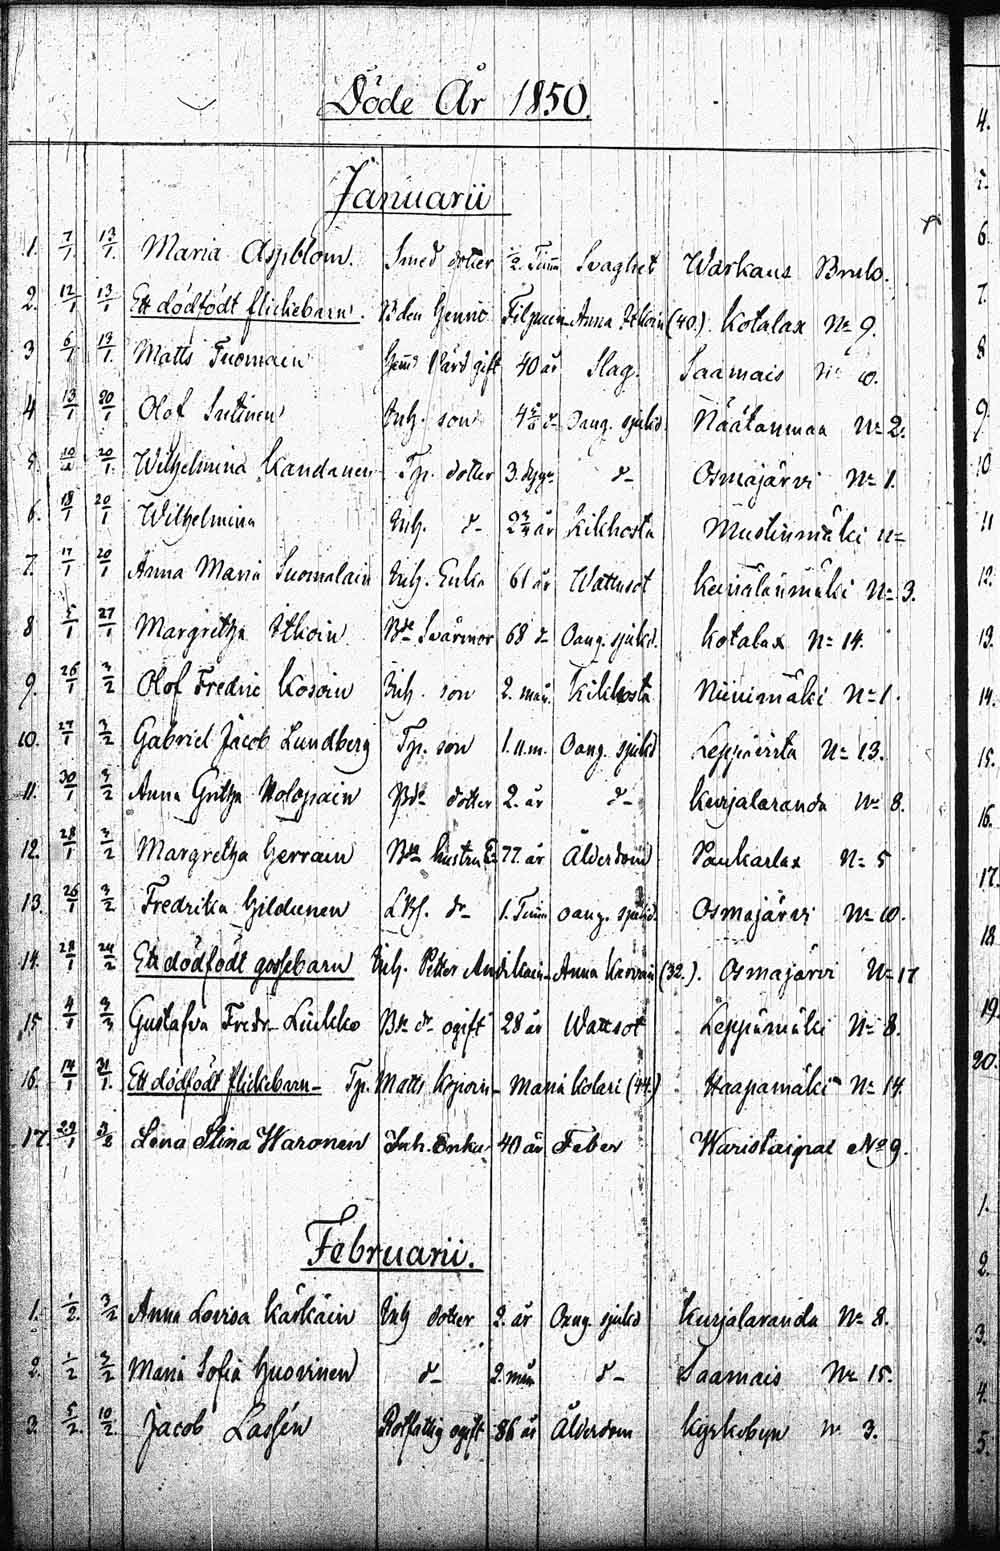 Döde År 1850.
Januarii
1. 7/1. 13/1. Maria Aspblom. Smed dotter 1/2. Tima Svaghet Warkaus Bruk.
2. 12/1 13/1 Ett dödfödt flickebarn. Bden Henric Filpuin Anna Itkoin (40.) Kotalax No 9.
3 6/1 13/1. Matts Tuomain Hem̄s Värd gift 40 år Slag. Saamais No 10.
4 13/1 20/1 Olof Sutinen Inh. son 4 d- Oang. sjukd Näätänmaa No 2.
5. 20/1. Wilhelmina Kandanen Tp. dotter 3. dygn d- Osmajärvi No 1.
6. 18/1 20/1 Wilhelmina Inh. d- 2 3/4 år Kikhosta Mustinmäki No
7. 17/1 20/1 Anna Maria Suomalain Inh. Enka 61 år Wattusot No 3.
8 5/1 27/1 Margretha Itkoin Bde Svärmor 68 d- Oang. sjukd. Kotalax No 14.
9. 26/1 3/2 Olof Fredric Kosoin Inh. son 2. mån. Kikhosta Niinimäki No 1.
10. 27/1 3/2 Gabriel Jacob Lundberg Tp. son 1. u.m. Oang. sjukd Leppävirta No 13.
11. 30/1 3/2 Anna Gretha Holopain Bde dotter 2. år d- Kurjalaranda No 8.
12. 28/1 3/2 Margretha Herrain Bde hustru E. 77. år Ålderdom Paukarlax No 5
13. 26/1 3/2 Fredrika Hildunen d- 1. Tima oang. sjukd. Osmajärvi No 10.
14. 28/1 24/2 Ett dödfödt gossebarn Inh. Petter Andikain Anna (32.) Osmajärvi No 17
15 4/1 3/3 Gustafva Fredr- Liukko Bde d- ogift 28 år Wattsot Leppämäki No 8.
16. 14/1 21/1. Ett dödfödt flickebarn- Tp. Matts - Maria Kolari (44) Haapamäki No 14.
17. 29/1 Lena Stina Waronen Inh. Enka 40 år Feber Waristaipal No 9.
Februarii.
1. 1/2. 3/2 Anna Lovisa Kärkäin Inh dotter 2. år Oang. sjukd Kurjalaranda No 8.
2. 1/2 3/2 Maria Sofia Huovinen d- 2. mån d- Saamais No 15.
3. 5/2. 10/2. Jacob Lassén Rotfattig ogift 86 år Ålderdom Kyrkobyn No 3.
4.
5.
6.
7.
8
9.
10
11
12.
13.
14.
15.
16.
17.
18.
19.
20.
1.
2.
3.
4.
5.